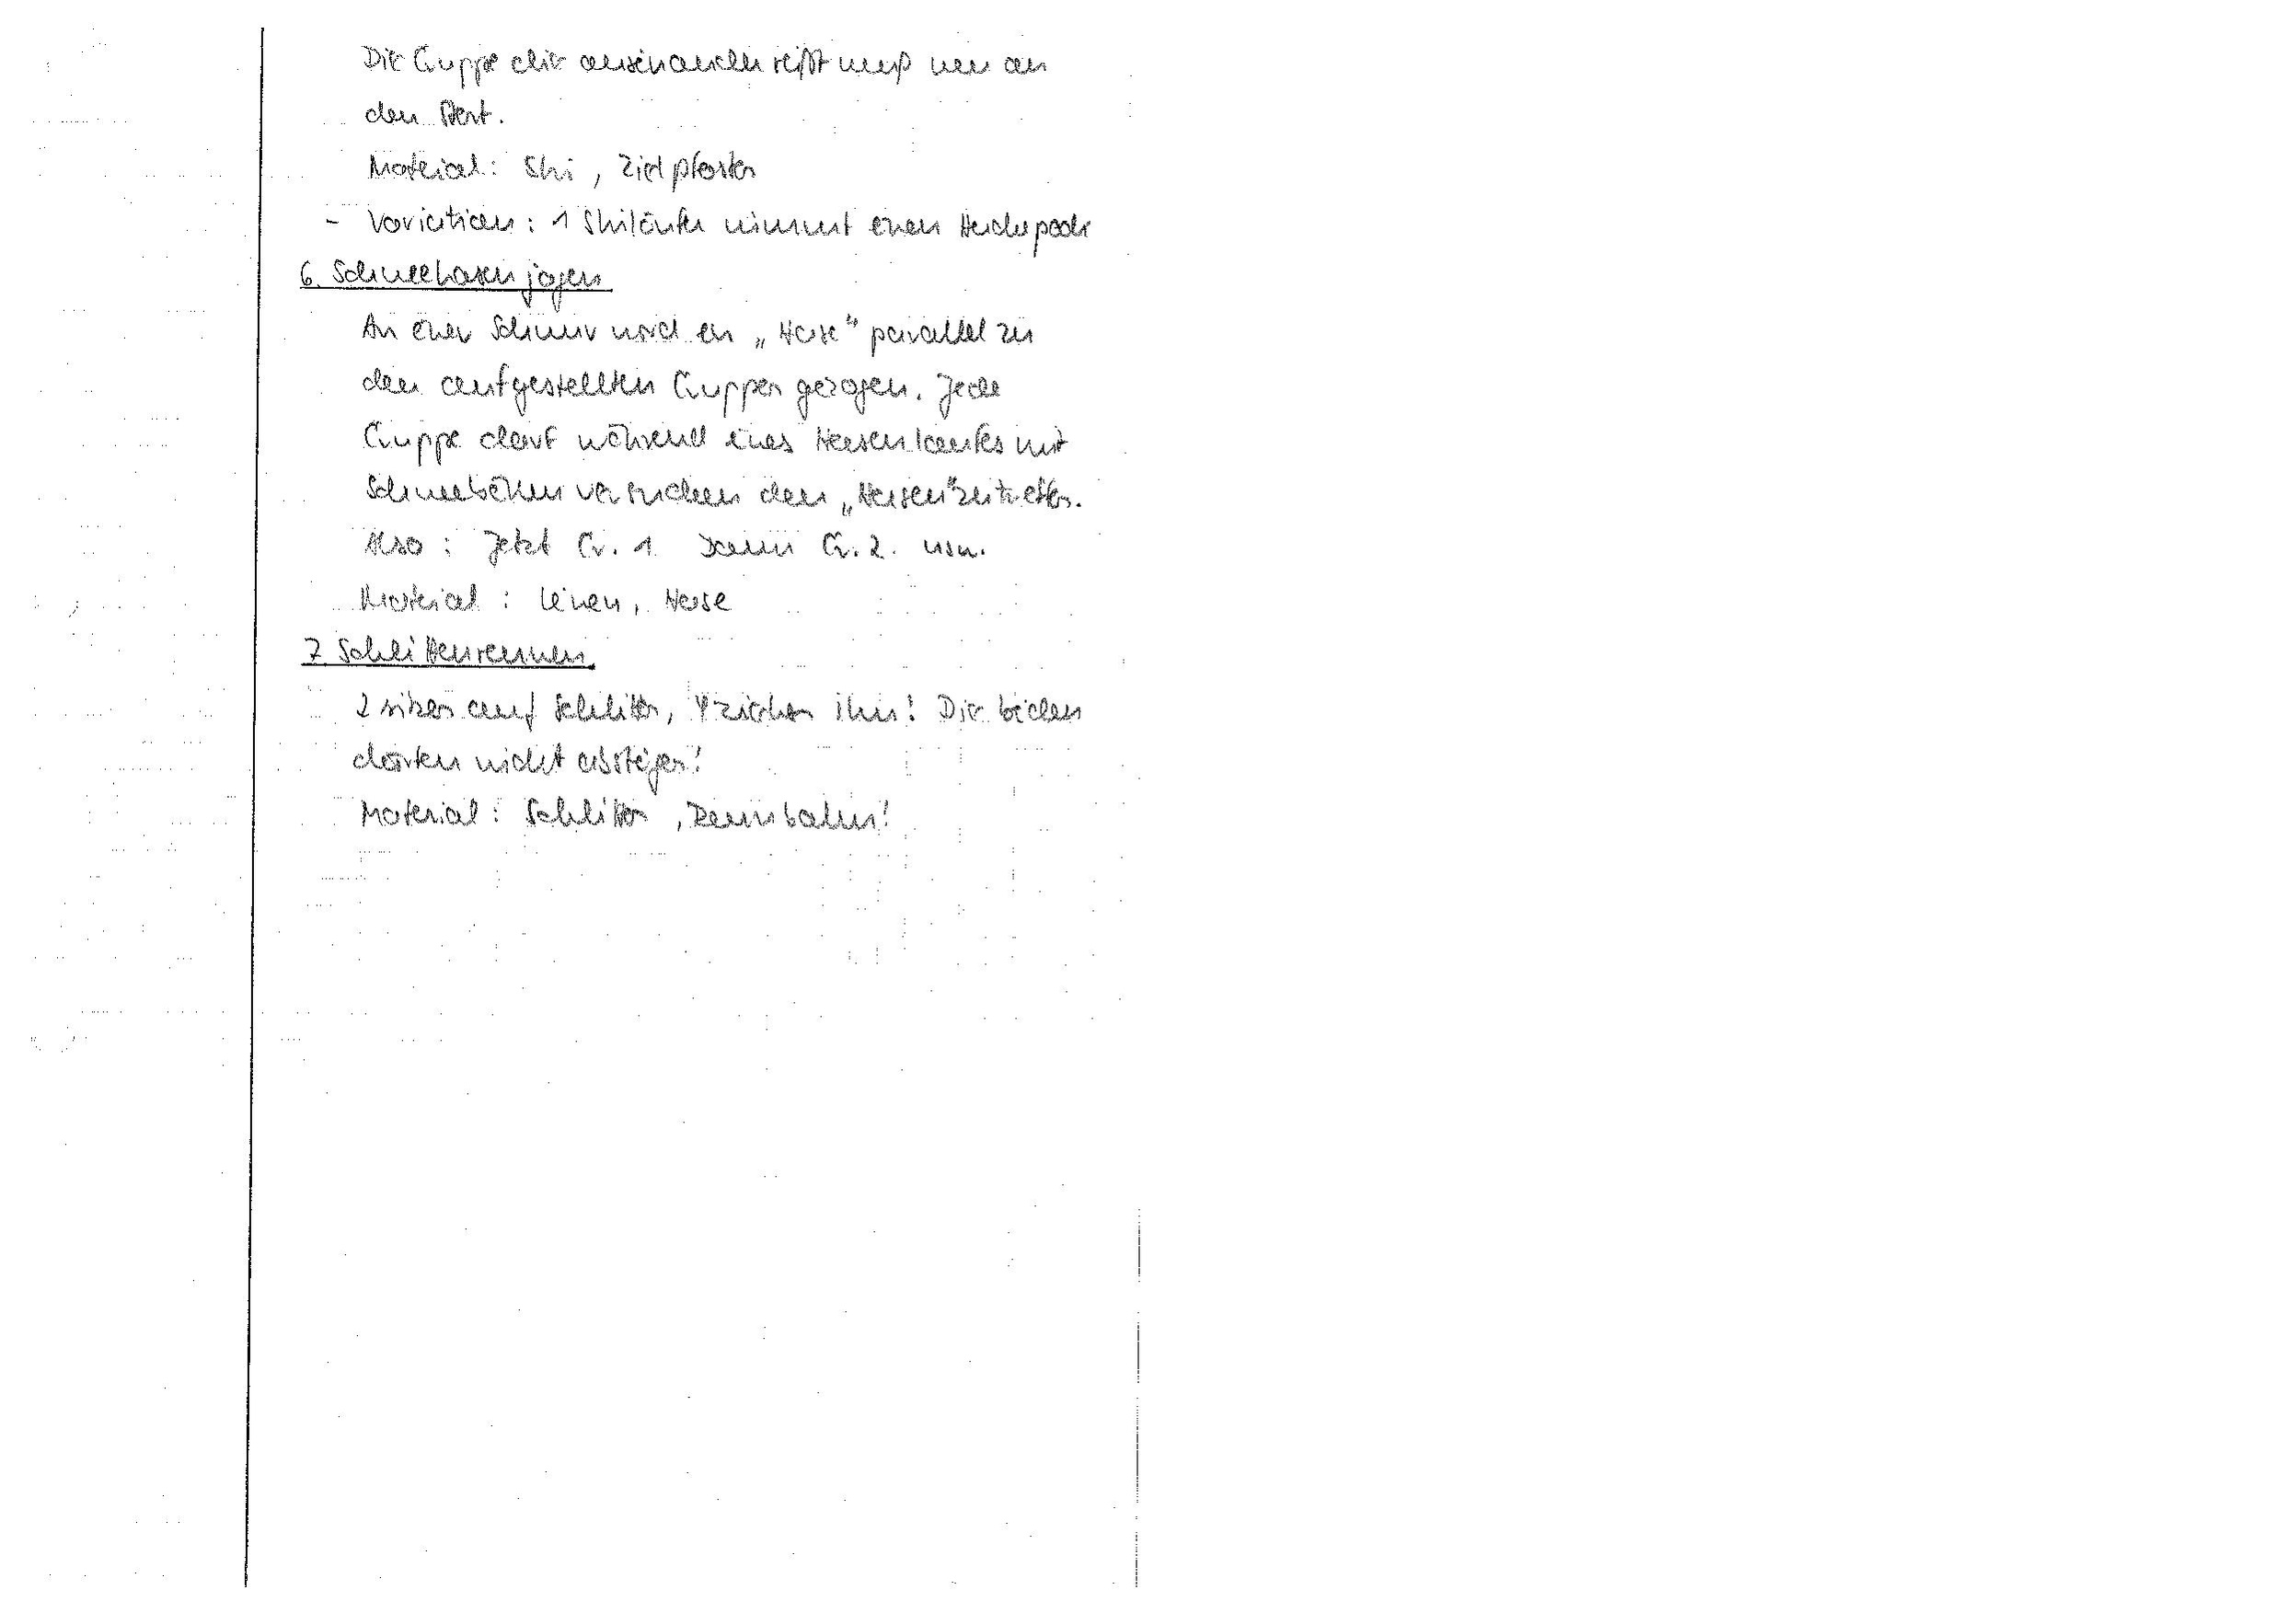 Die Gruppe die auseinander reißt muß neu an
den Start.
Material: Ski, Zielpfosten
- Variation: 1 Skiläufer nimmt einen Huckepack
6. Schneehasen jagen
An einer Schnur wird ein „Hase“ parallel zu
den aufgestellten Gruppen gezogen. Jede
Gruppe darf während eines Hasenlaufes mit
Schneebällen versuchen den „Hasen“ zu treffen.
Also: Jetzt Gr. 1 Dann Gr. 2. usw.
Material: Leinen, Hase
7. Schlittenrennen
2 sitzen auf Schlitten, 4 ziehen ihn! Die beiden
dürfen nicht absteigen!
Material: Schlitten, Rennbahn!